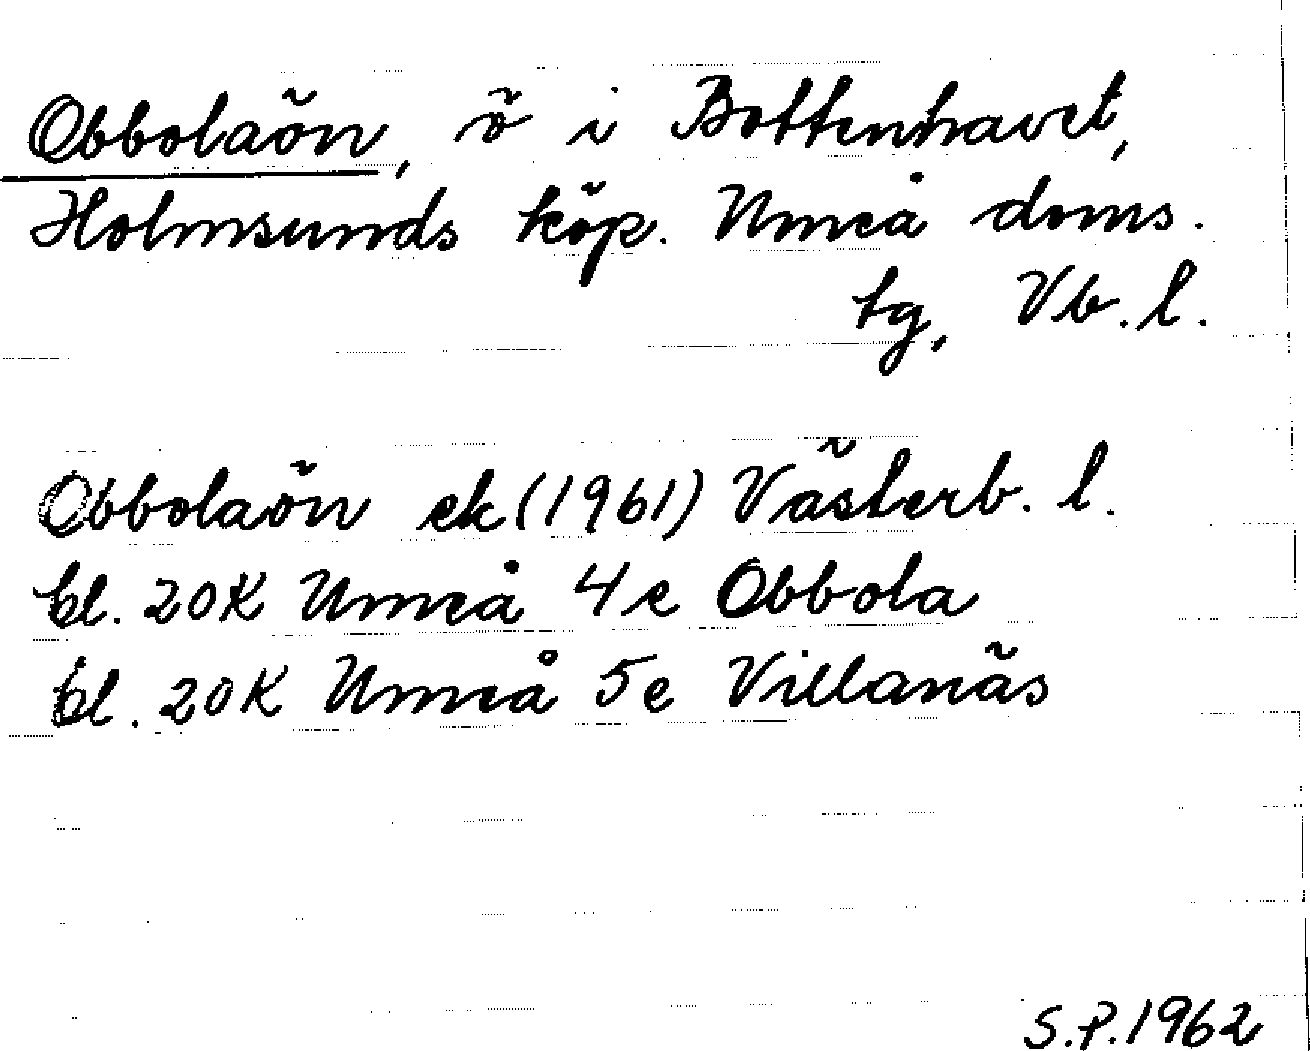 Obbolaön, ö i Bottenhavet,
Holmsunds köp. Umeå doms.
tg, Vb. l.
Obbolaön ek (1961) Västerb. l.
bl. 20K Umeå 4e Obbola
bl. 20K Umeå 5e Villanäs
S.P. 1962